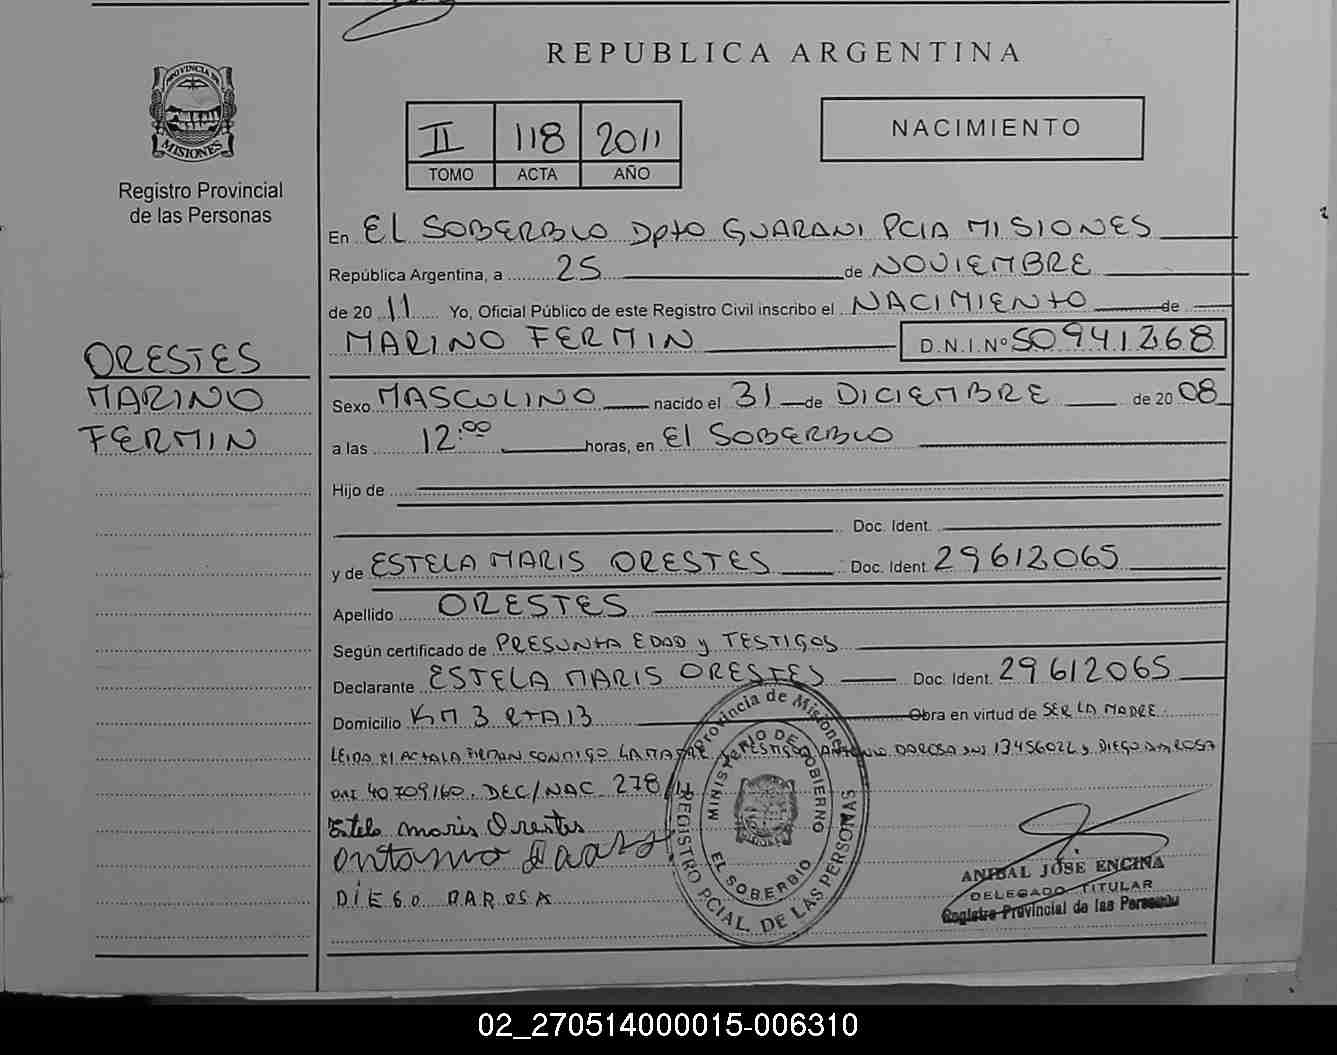 REPUBLICA ARGENTINA
PROVINCIA DE
MISIONES
Registro Provincial
de las Personas
II 118 2011
TOMO ACTA AÑO
NACIMIENTO
En EL SOBERBIO Dpto GUARANI PCIA MISIONES
República Argentina, a 25 de NOVIEMBRE
de 20 11 Yo, Oficial Público de este Registro Civil inscribo el NACIMIENTO de
MARINO FERMIN D.N.I.Nº 50941268
ORESTES
MARINO
FERMIN
Sexo MASCULINO nacido el 31 de DICIEMBRE de 20 08
a las 12:00 horas, en El SOBERBIO
Hijo de
Doc. Ident.
y de ESTELA MARIS ORESTES Doc. Ident. 29612065
Apellido ORESTES
Según certificado de PRESUNTA EDAD y TESTIGOS
Declarante ESTELA MARIS ORESTES Doc. Ident. 29612065
Domicilio KM 3 RTA 13 Obra en virtud de SER LA MADRE
LEIDA El ACTA LA FIRMAN CONMIGO LA MADRE TESTIGOS ANTONIO DAROSA DNI 13456022 y DIEGO DAROSA
DNI 40709160. DEC/NAC 278/11
Estela maris Orestes
Antonio
DIEGO DAROSA
Provincia de Misiones
MINISTERIO DE GOBIERNO
EL SOBERBIO
REGISTRO PCIAL. DE LAS PERSONAS
ANIBAL JOSE ENCINA
DELEGADO TITULAR
Registro Provincial de las Personas
02_270514000015-006310